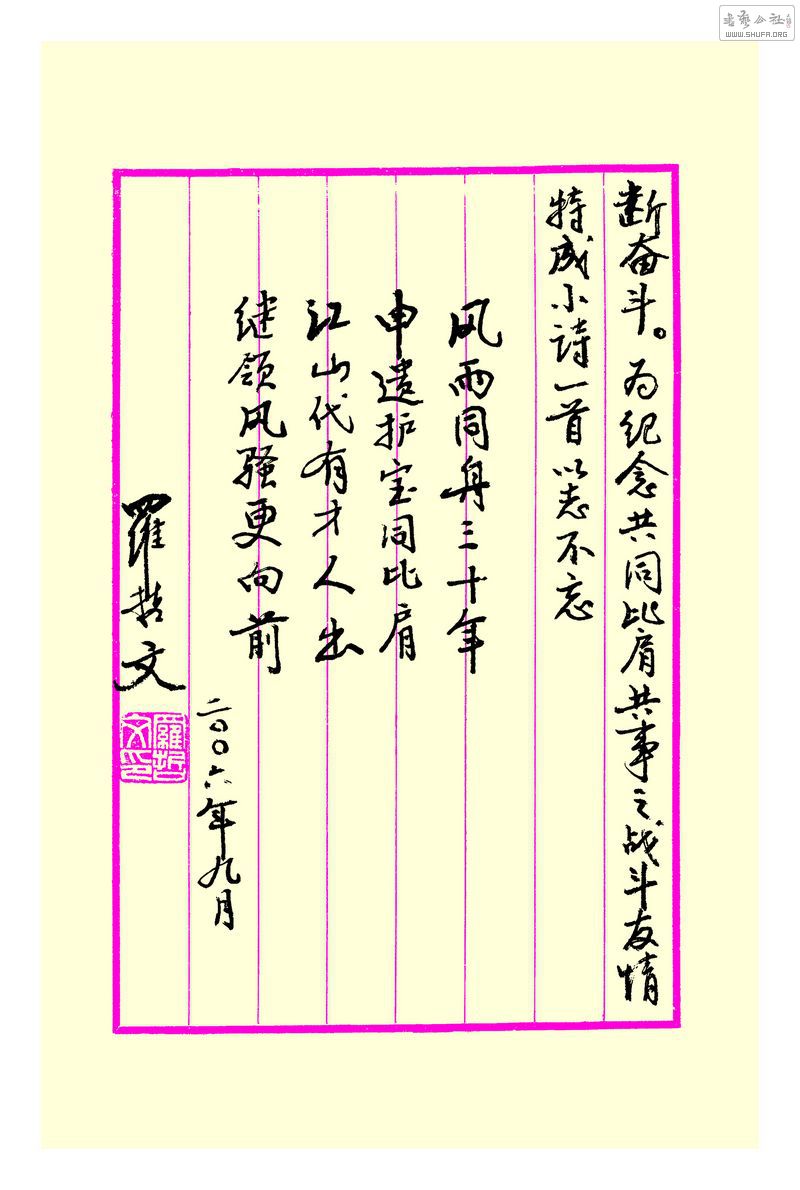 断奋斗。为纪念共同比肩共事之战斗友情
特成小诗一首以志不忘
风雨同舟三十年
申遗护宝同比肩
江山代有才人出
继领风骚更向前
二〇〇六年九月
羅哲文
羅哲文印
書藝公社
WWW.SHUFA.ORG